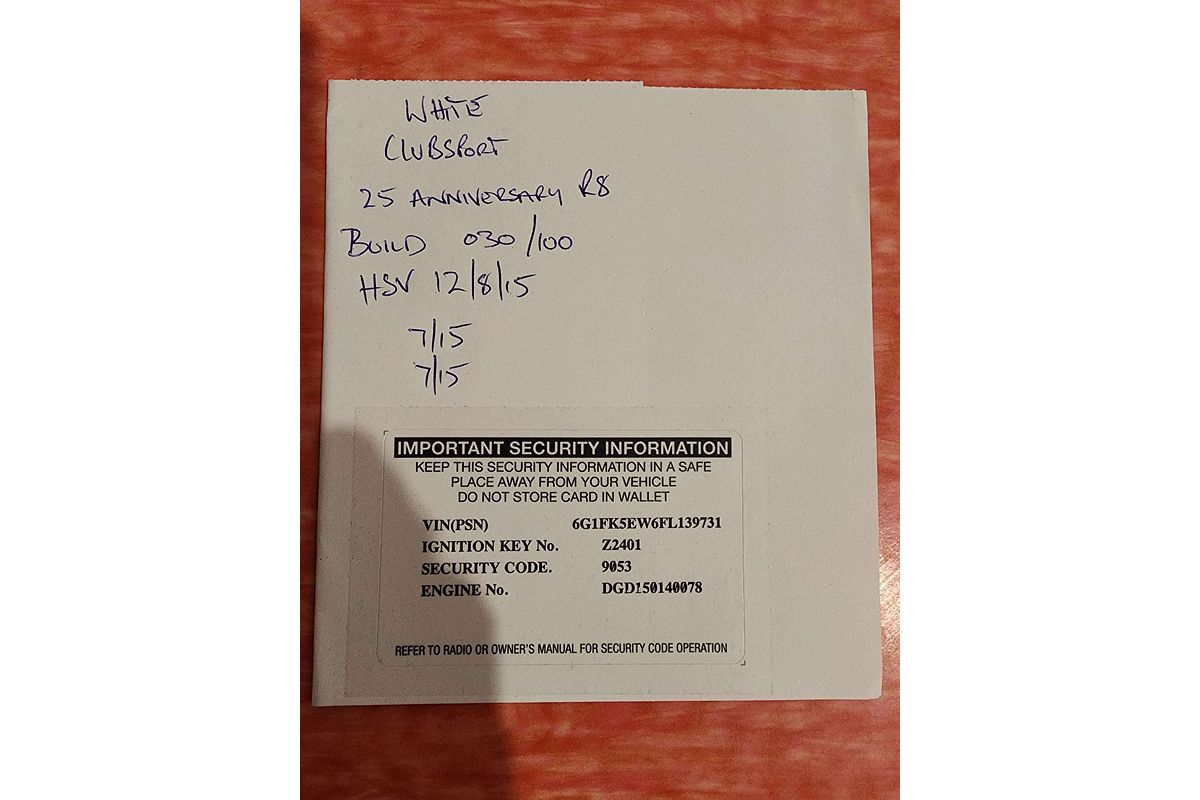 WHITE
CLUBSPORT
25 ANNIVERSARY R8
BUILD 030/100
HSV 12/8/15
7/15
7/15
IMPORTANT SECURITY INFORMATION
KEEP THIS SECURITY INFORMATION IN A SAFE
PLACE AWAY FROM YOUR VEHICLE
DO NOT STORE CARD IN WALLET
VIN(PSN) 6G1FK5EW6FL139731
IGNITION KEY No. Z2401
SECURITY CODE. 9053
ENGINE No. DGD150140078
REFER TO RADIO OR OWNER'S MANUAL FOR SECURITY CODE OPERATION